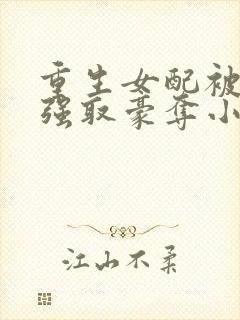 重生女配被
强取豪夺小
江山不柔